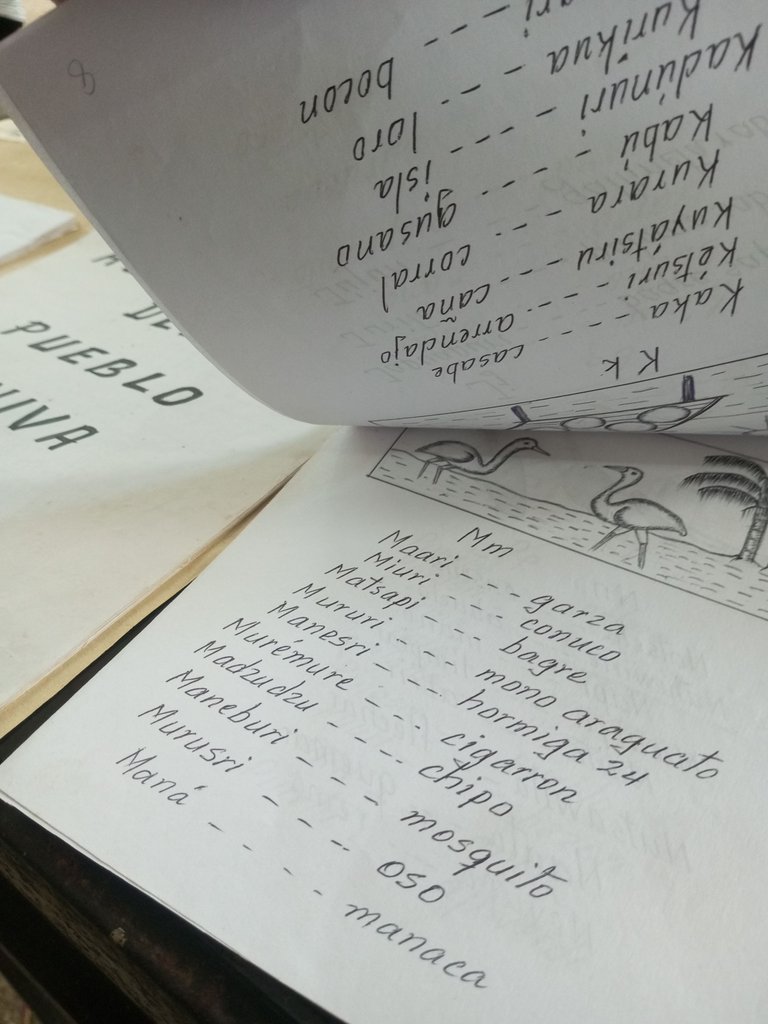 K k
Kaka - - - - casabe
Kétsuri - - - arrendajo
Kuyátsiru - - - caña
Kurara - - - corral
Kabú - - - - gusano
Kadúnuri - - - - isla
Kurikua - - - - loro
bocon
8
PUEBLO
Mm
Maari - - - garza
Miuri - - - - conuco
Matsapi - - - - bagre
Mururi - - - - mono araguato
Manesri - - - - hormiga 24
Murémure - - - cigarron
Madzudzu - - - - chipo
Maneburi - - - - mosquito
Murusri - - - - oso
Maná - - - - - manaca